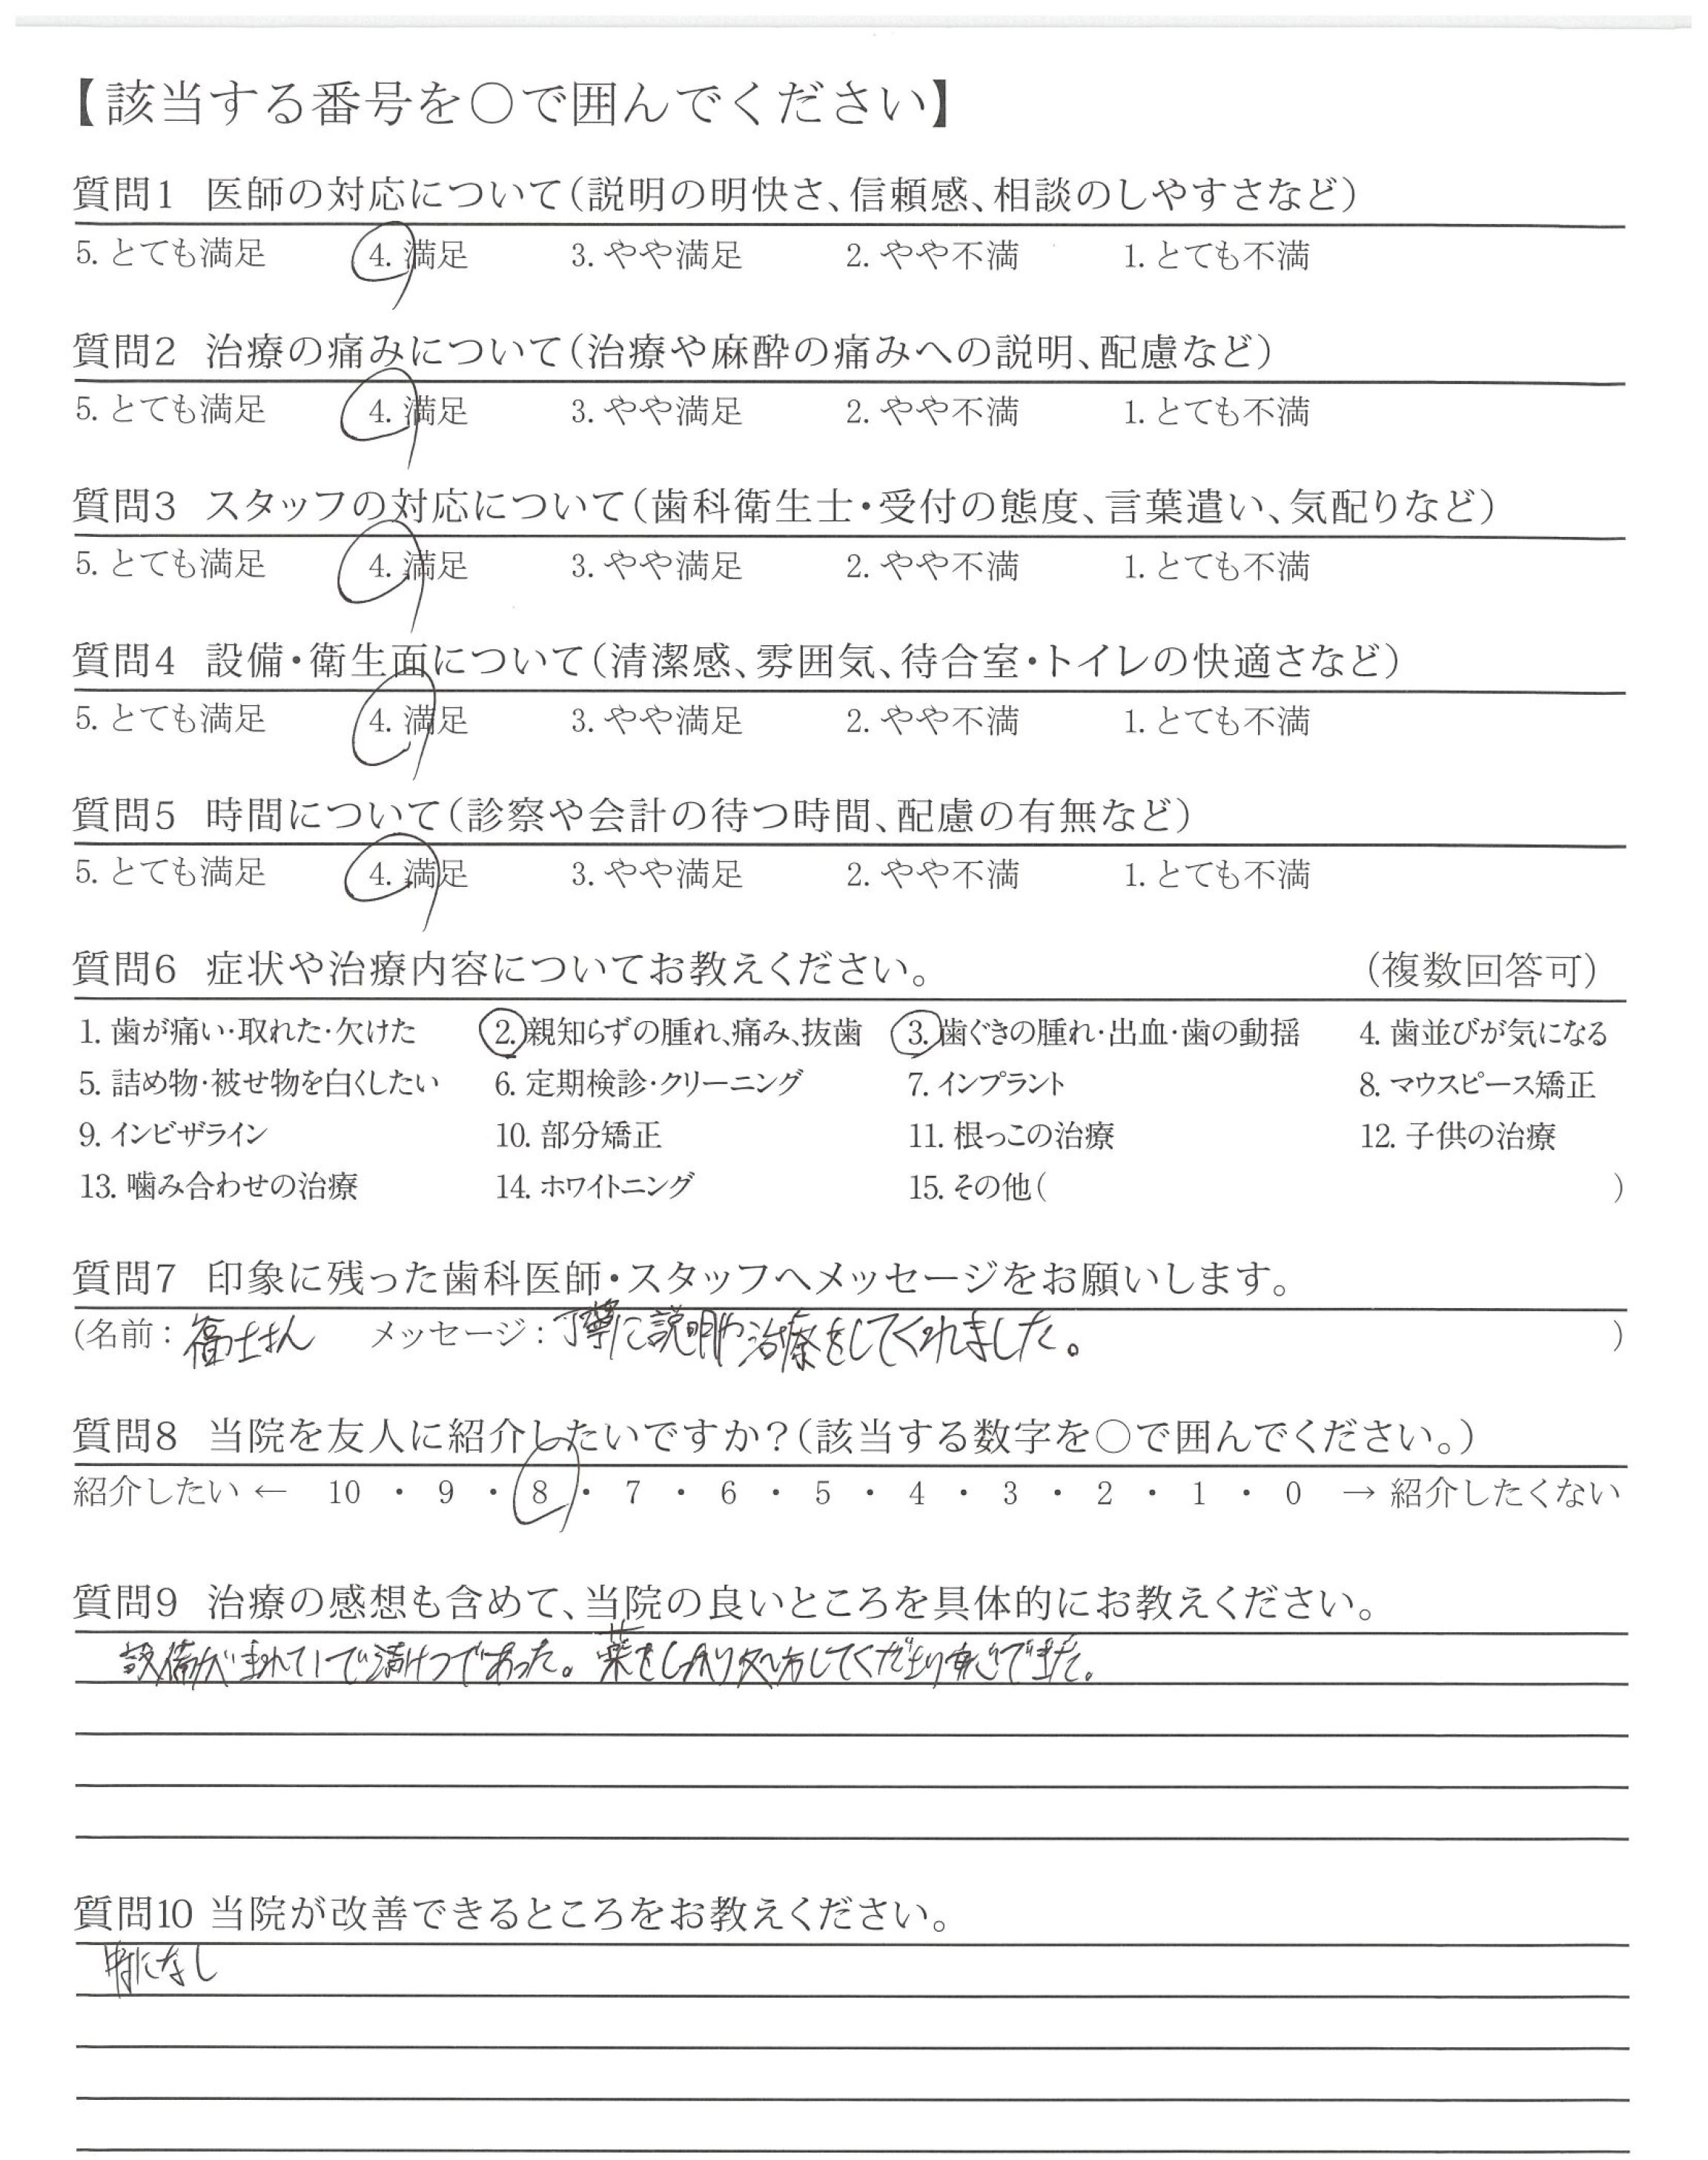 【該当する番号を○で囲んでください】
質問1 医師の対応について（説明の明快さ、信頼感、相談のしやすさなど）
5. とても満足 4. 満足 3. やや満足 2. やや不満 1. とても不満
質問2 治療の痛みについて（治療や麻酔の痛みへの説明、配慮など）
5. とても満足 4. 満足 3. やや満足 2. やや不満 1. とても不満
質問3 スタッフの対応について（歯科衛生士・受付の態度、言葉遣い、気配りなど）
5. とても満足 4. 満足 3. やや満足 2. やや不満 1. とても不満
質問4 設備・衛生面について（清潔感、雰囲気、待合室・トイレの快適さなど）
5. とても満足 4. 満足 3. やや満足 2. やや不満 1. とても不満
質問5 時間について（診察や会計の待つ時間、配慮の有無など）
5. とても満足 4. 満足 3. やや満足 2. やや不満 1. とても不満
質問6 症状や治療内容についてお教えください。 （複数回答可）
1. 歯が痛い・取れた・欠けた 2. 親知らずの腫れ、痛み、抜歯 3. 歯ぐきの腫れ・出血・歯の動揺 4. 歯並びが気になる
5. 詰め物・被せ物を白くしたい 6. 定期検診・クリーニング 7. インプラント 8. マウスピース矯正
9. インビザライン 10. 部分矯正 11. 根っこの治療 12. 子供の治療
13. 噛み合わせの治療 14. ホワイトニング 15. その他（ ）
質問7 印象に残った歯科医師・スタッフへメッセージをお願いします。
（名前： さん メッセージ：丁寧に説明や治療をしてくれました。 ）
質問8 当院を友人に紹介したいですか？（該当する数字を○で囲んでください。）
紹介したい ← 10 ・ 9 ・ 8 ・ 7 ・ 6 ・ 5 ・ 4 ・ 3 ・ 2 ・ 1 ・ 0 → 紹介したくない
質問9 治療の感想も含めて、当院の良いところを具体的にお教えください。
設備が で清けつであった。薬をしっかり処方してくださり安心できた。
質問10 当院が改善できるところをお教えください。
特になし